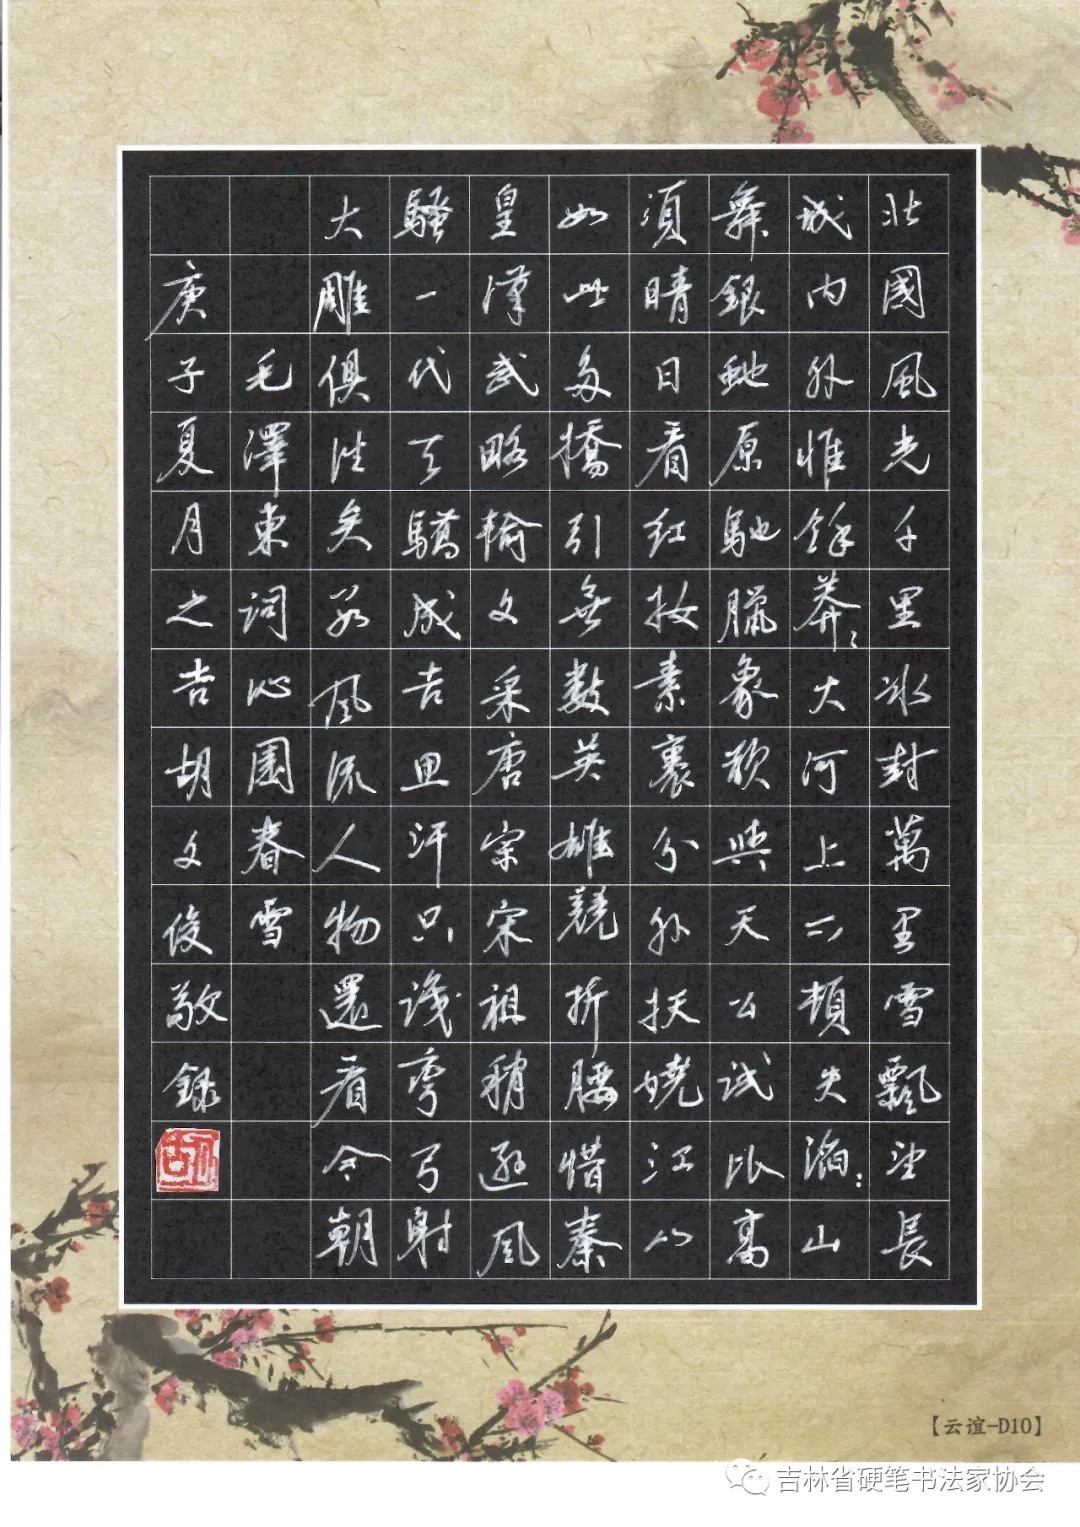 北國風光千里冰封萬里雪飄望長
城内外惟餘莽〻大河上下頓失滔〻山
舞銀蛇原馳臘象欲與天公試比高
須晴日看紅妝素裹分外妖嬈江山
如此多嬌引無數英雄競折腰惜秦
皇漢武略輸文采唐宗宋祖稍遜風
騷一代天驕成吉思汗只識彎弓射
大雕俱往矣數風流人物還看今朝
毛澤東詞沁園春雪
庚子夏月之吉胡文俊敬録
【云谊-D10】
吉林省硬笔书法家协会